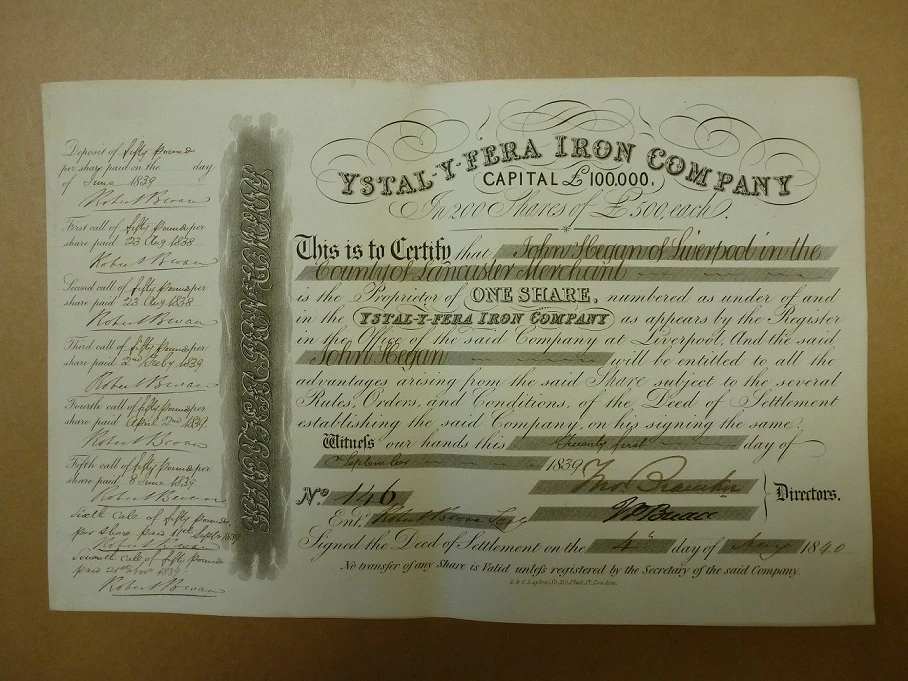 Deposit of fifty Pounds
per share paid on the day
of June 1839
Robert Bevan
First call of fifty Pounds per
share paid 23 Aug 1838
Robert Bevan
Second call of fifty Pounds per
share paid 23 Aug 1838
Robert Bevan
Third call of fifty Pounds per
share paid 2nd Feby 1839
Robert Bevan
Fourth call of fifty Pounds per
share paid April 2nd 1839
Robert Bevan
Fifth call of fifty Pounds per
share paid 8 June 1839
Robert Bevan
Sixth Call of fifty Pounds
per Share Paid 11th Septbr 1839
Robert Bevan
Seventh Call of fifty Pounds
paid 21st Novr 1839
Robert Bevan
YSTAL-Y-FERA IRON COMPANY
CAPITAL £100,000,
In 200 Shares of £500, each.
This is to Certify that John Hegan of Liverpool in the
County of Lancaster Merchant
is the Proprietor of ONE SHARE, numbered as under of and
in the YSTAL-Y-FERA IRON COMPANY as appears by the Register
in the Office of the said Company at Liverpool. And the said
John Hegan will be entitled to all the
advantages arising from the said Share subject to the several
Rules, Orders, and Conditions, of the Deed of Settlement
establishing the said Company, on his signing the same.
Witness our hands this twenty first day of
September 1839
No. 146
Directors.
Entd. Robert Bevan
Signed the Deed of Settlement on the 4th day of May 1840
No transfer of any Share is Valid unless registered by the Secretary of the said Company.